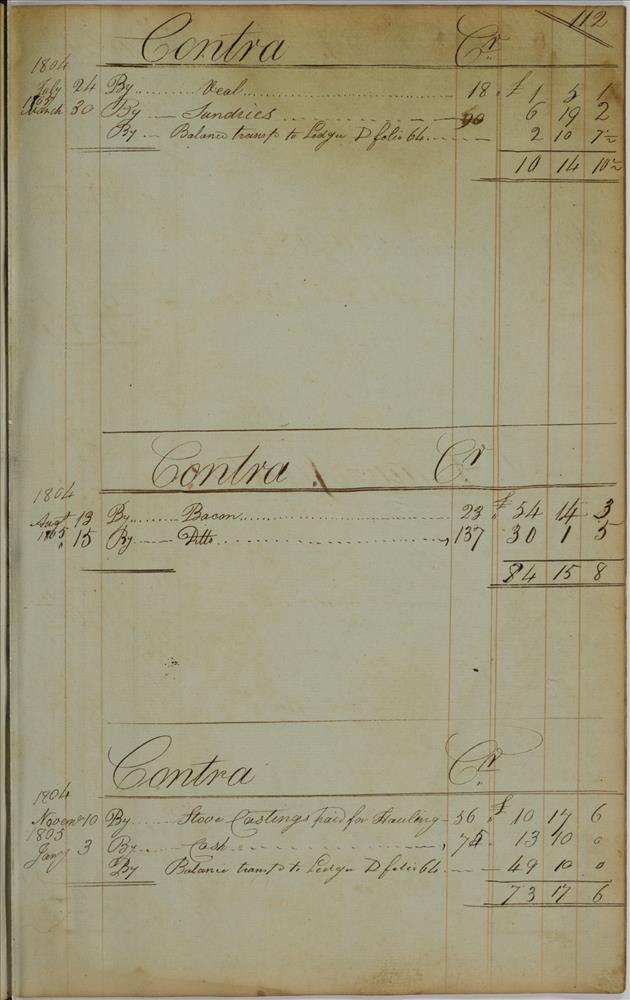 112
Contra Cr.
1804
July 24 By Veal 18 £ 1 5 1
1805
March 30 By Sundries 90 6 19 2
By Balance transfd to Ledger D folio 64 2 10 7½
10 14 10½
Contra Cr
1804
Augt 13 By Bacon 23 £ 54 14 3
1805
" 15 By Ditto 137 30 1 5
84 15 8
Contra Cr.
1804
Novemr 10 By Stove Castings paid for Hauling 56 £ 10 17 6
1805
Jany 3 By Cash 74 13 10 0
By Balance transfd to Ledger D folio 64 49 10 0
73 17 6